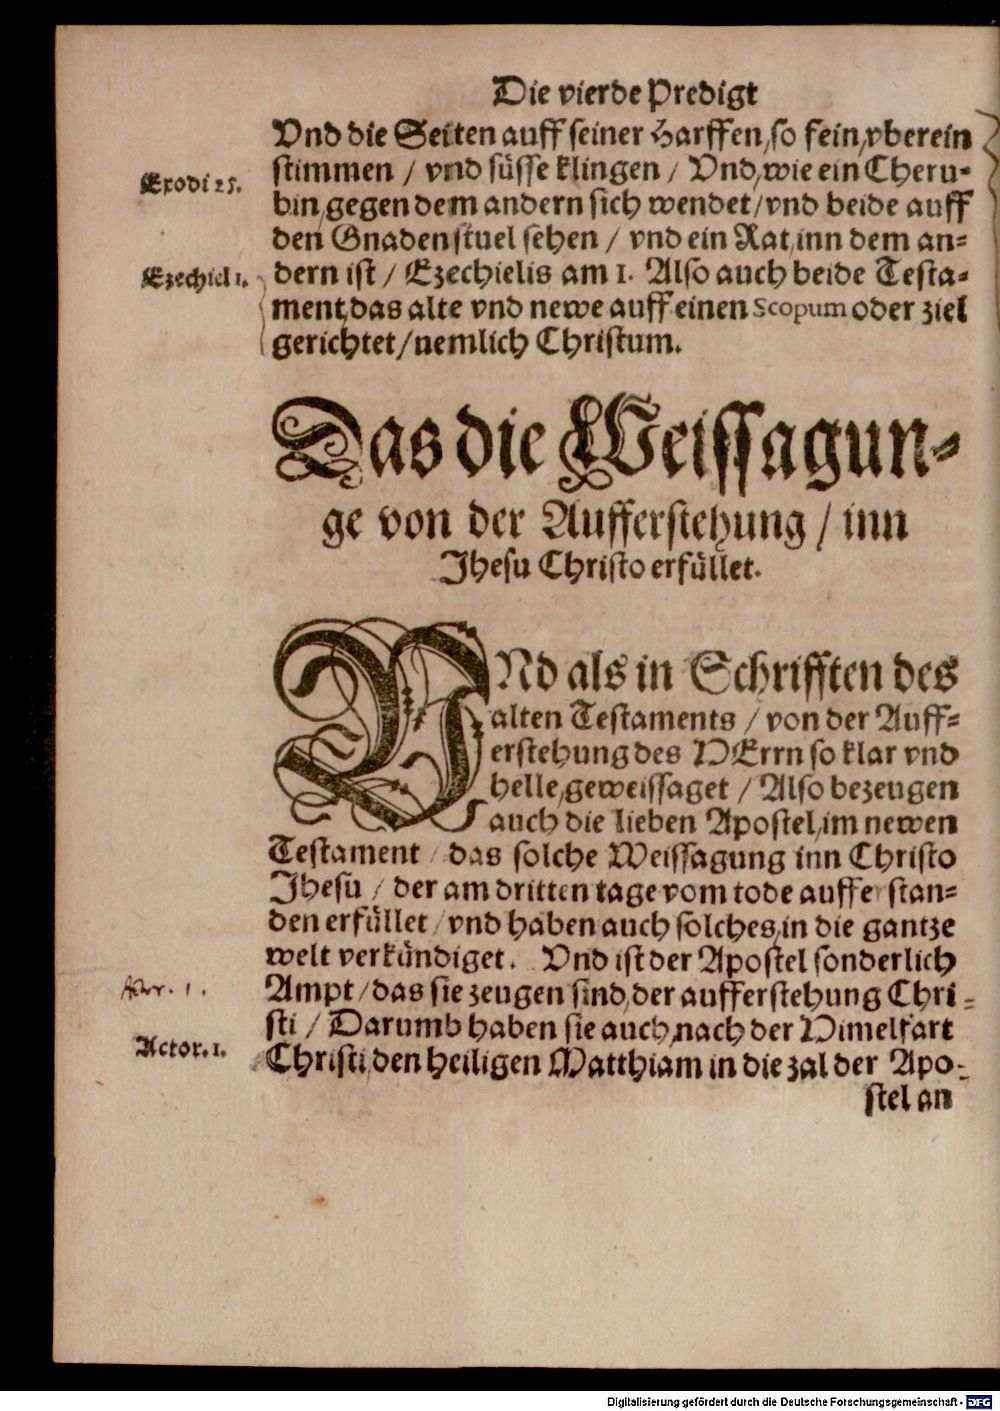 Die vierde Predigt
Vnd die Seiten auff seiner Harffen, so fein, vberein
stimmen / vnd süsse klingen / Vnd, wie ein Cheru-
Exodi 25.
bin, gegen dem andern sich wendet / vnd beide auff
den Gnadenstuel sehen / vnd ein Rat, inn dem an-
Ezechiel 1.
dern ist / Ezechielis am 1. Also auch beide Testa-
ment, das alte vnd newe auff einen Scopum oder ziel
gerichtet / nemlich Christum.
Das die Weissagun-
ge von der Aufferstehung / inn
Jhesu Christo erfüllet.
VNd als in Schrifften des
alten Testaments / von der Auff-
erstehung des HErrn so klar vnd
helle, geweissaget / Also bezeugen
auch die lieben Apostel, im newen
Testament / das solche Weissagung inn Christo
Jhesu / der am dritten tage vom tode aufferstan-
den erfüllet / vnd haben auch solches, in die gantze
welt verkündiget. Vnd ist der Apostel sonderlich
Ampt / das sie zeugen sind, der aufferstehung Chri-
sti / Darumb haben sie auch, nach der Himelfart
Actor. 1.
Christi, den heiligen Matthiam in die zal der Apo-
stel an
Digitalisierung gefördert durch die Deutsche Forschungsgemeinschaft - DFG